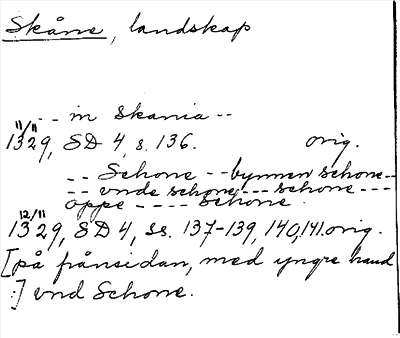 Skåne, landskap
-- in Skania --
11/11
1329, SD 4, s. 136. orig.
-- Schone -- bynnen schone --
-- vnde schone --- schone ---
oppe ---- schone.
12/11
1329, SD 4, ss. 137-139, 140, 141. orig.
[på frånsidan, med yngre hand
:] vnd Schone.